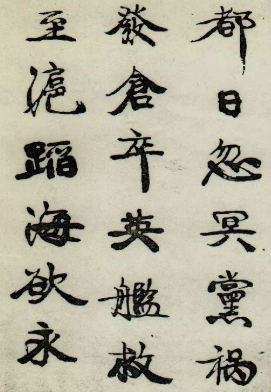 都日忽冥黨禍
發倉卒英艦救
至滬蹈海欲永